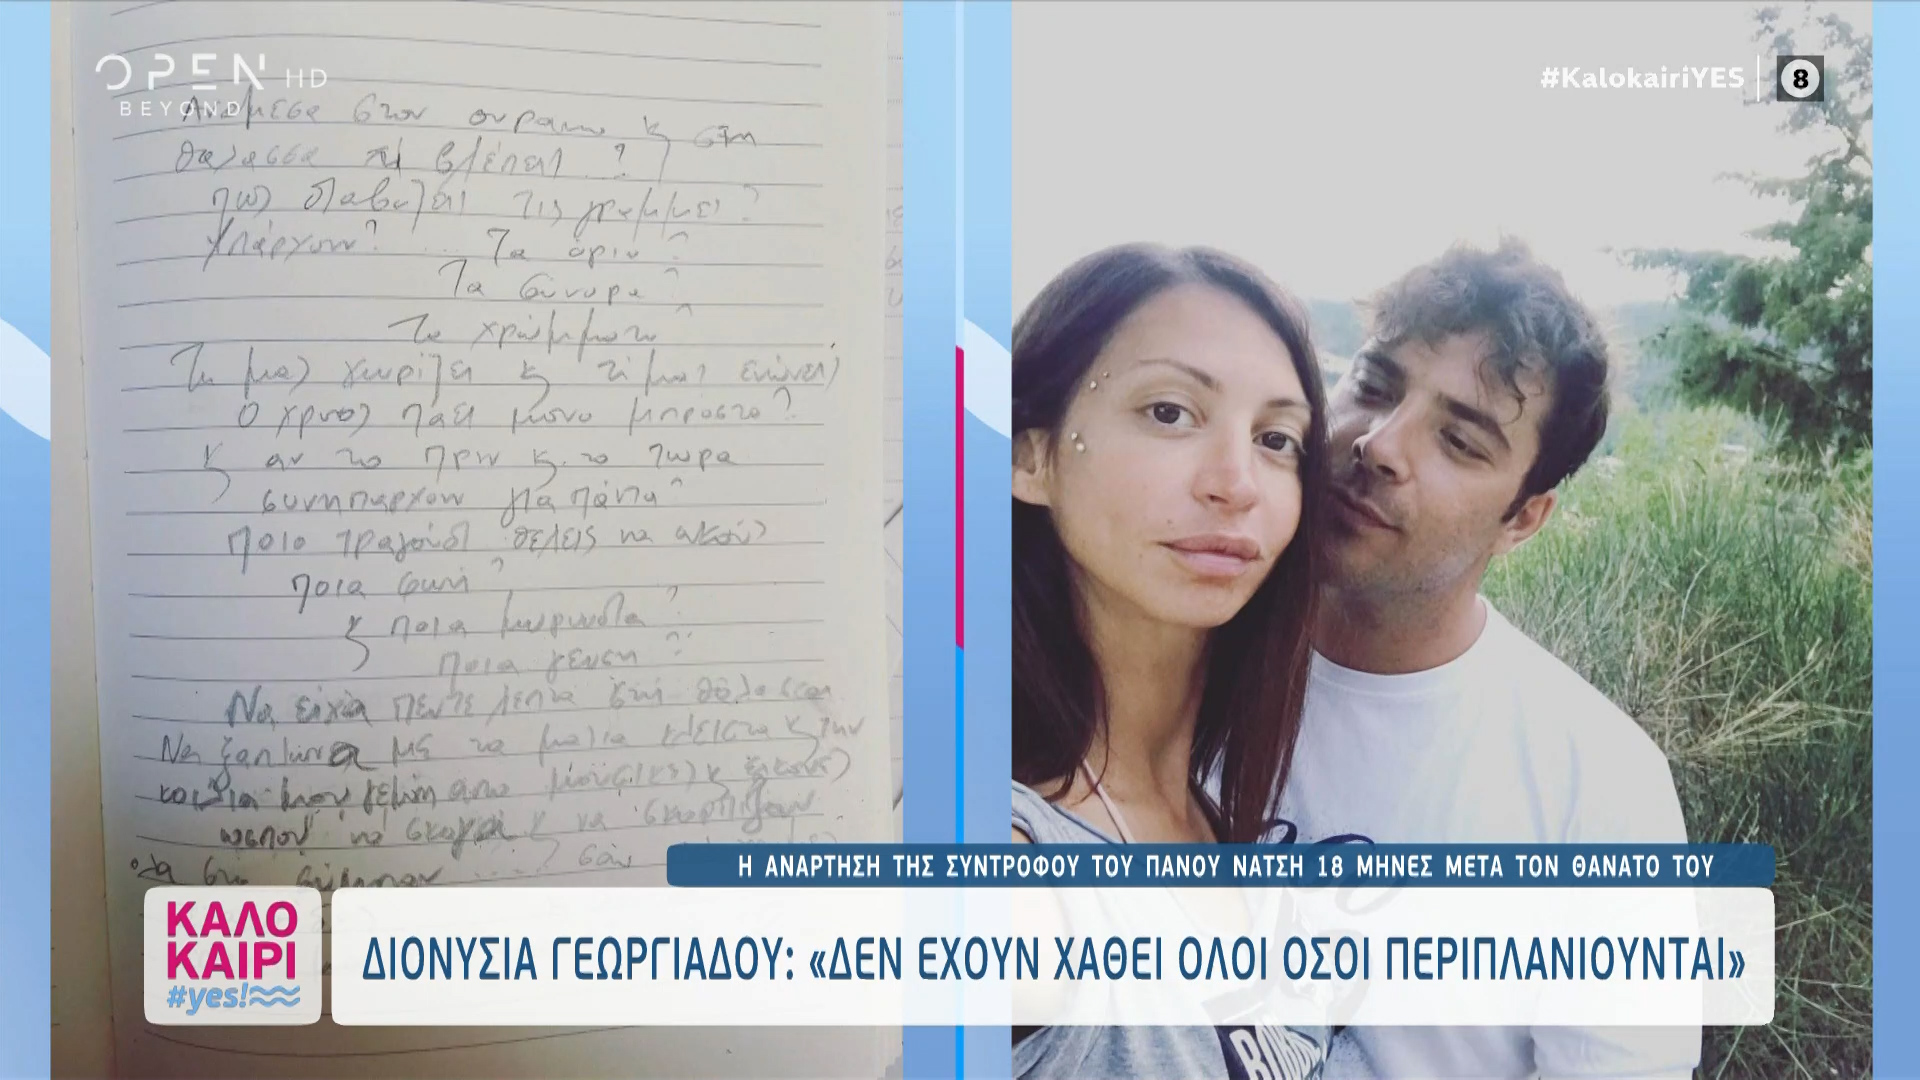 OPEN HD
BEYOND
#KalokairiYES
8
Ανάμεσα στον ουρανο κ στη
θαλασσα τί βλέπεις ?
πως διαβαζεις τις γραμμες ?
Υπάρχουν? .... Τα όρια ?
Τα σύνορα ?
Τα χρώμματα ?
Τι μας χωρίζει κ τί μας ενώνει;
Ο χρονος παει μονο μπροστα?
κ αν το πριν κ το τωρα
συνηπαρχουν για πάντα?
Ποιο τραγούδι θελεις να ακούς
ποια φωνή ?
κ ποια μυρωδια ?
ποια γευση ?
Να ειχα πεντε λεπτα στη θάλασσα
Να ξαπλωνα με τα ματια κλειστα κ την
κοιλια μου γεμάτη απο μουσικες κ
ωσπου να σκαγα κ να σκορπιζαν
ολα στο σύμπαν ..... σαν
Η ΑΝΑΡΤΗΣΗ ΤΗΣ ΣΥΝΤΡΟΦΟΥ ΤΟΥ ΠΑΝΟΥ ΝΑΤΣΗ 18 ΜΗΝΕΣ ΜΕΤΑ ΤΟΝ ΘΑΝΑΤΟ ΤΟΥ
ΚΑΛΟ
ΚΑΙΡΙ
#yes!
ΔΙΟΝΥΣΙΑ ΓΕΩΡΓΙΑΔΟΥ: «ΔΕΝ ΕΧΟΥΝ ΧΑΘΕΙ ΟΛΟΙ ΟΣΟΙ ΠΕΡΙΠΛΑΝΙΟΥΝΤΑΙ»